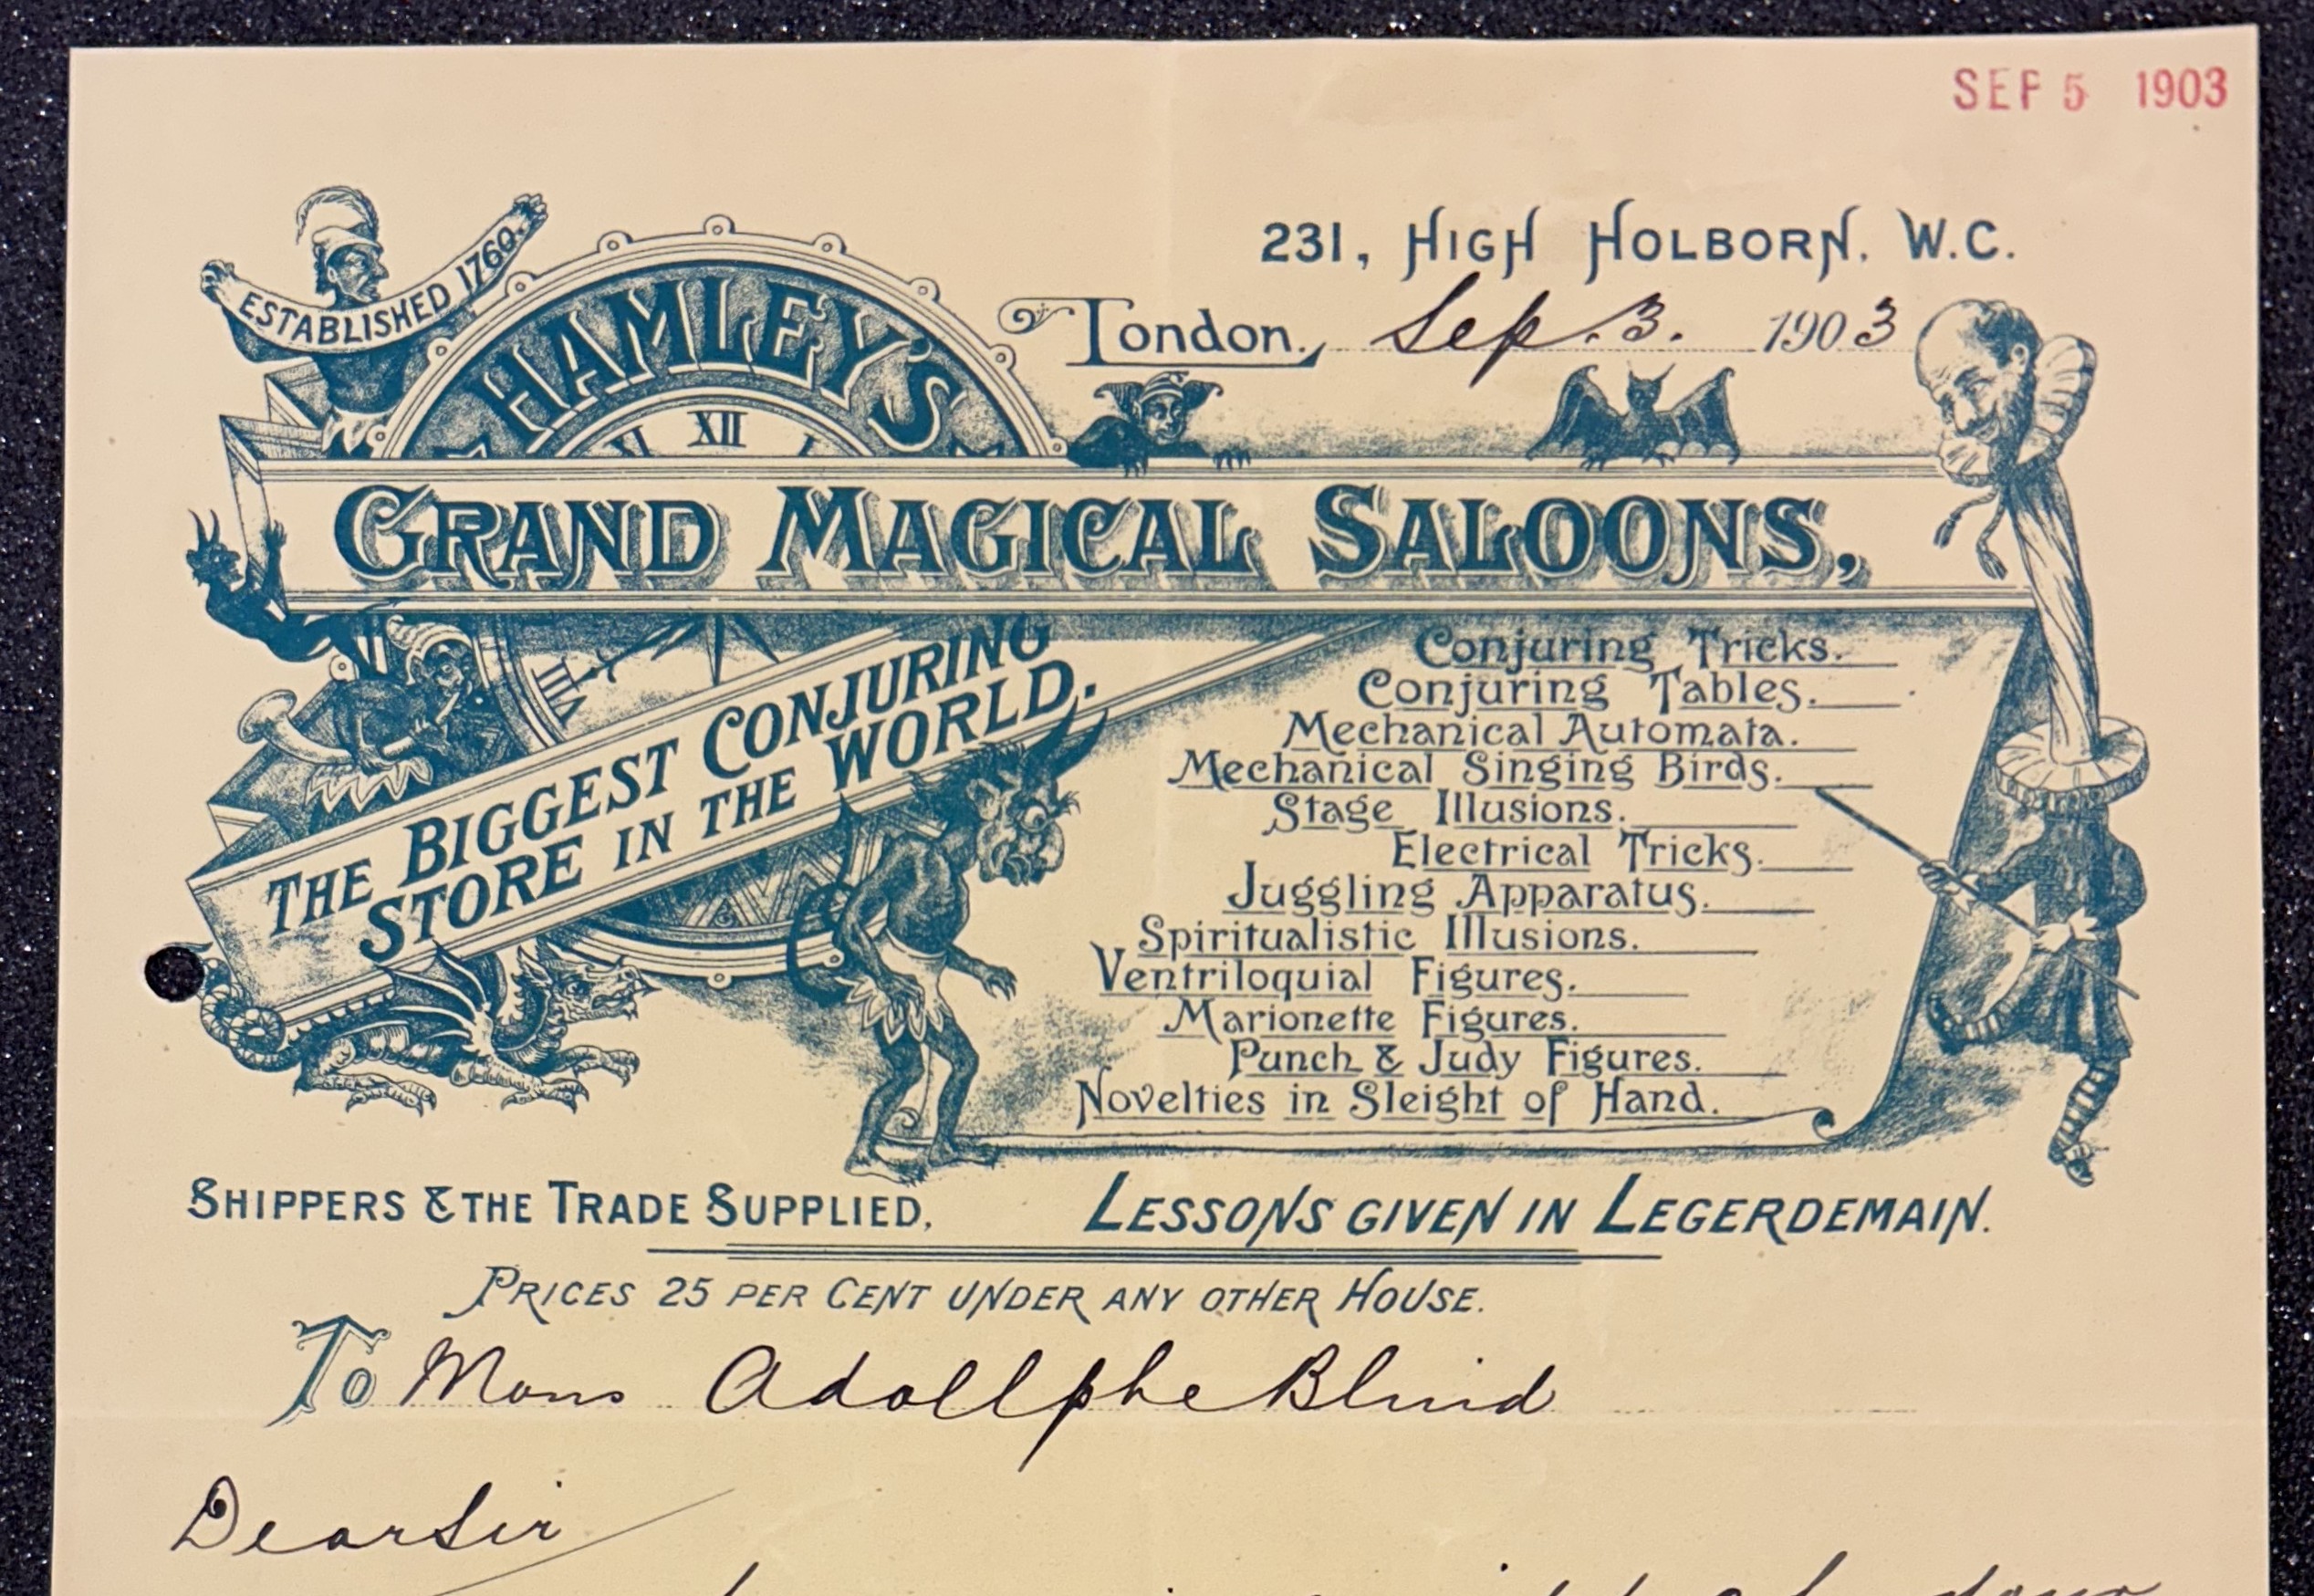 SEP 5 1903
231, HIGH HOLBORN, W.C.
London, Sep. 3. 1903
ESTABLISHED 1760.
HAMLEY'S
XI XII I
GRAND MAGICAL SALOONS,
THE BIGGEST CONJURING
STORE IN THE WORLD.
VIII
Conjuring Tricks.
Conjuring Tables.
Mechanical Automata.
Mechanical Singing Birds.
Stage Illusions.
Electrical Tricks.
Juggling Apparatus.
Spiritualistic Illusions.
Ventriloquial Figures.
Marionette Figures.
Punch & Judy Figures.
Novelties in Sleight of Hand.
SHIPPERS & THE TRADE SUPPLIED, LESSONS GIVEN IN LEGERDEMAIN.
PRICES 25 PER CENT UNDER ANY OTHER HOUSE.
To Mons Adollphe Blind
Dear Sir